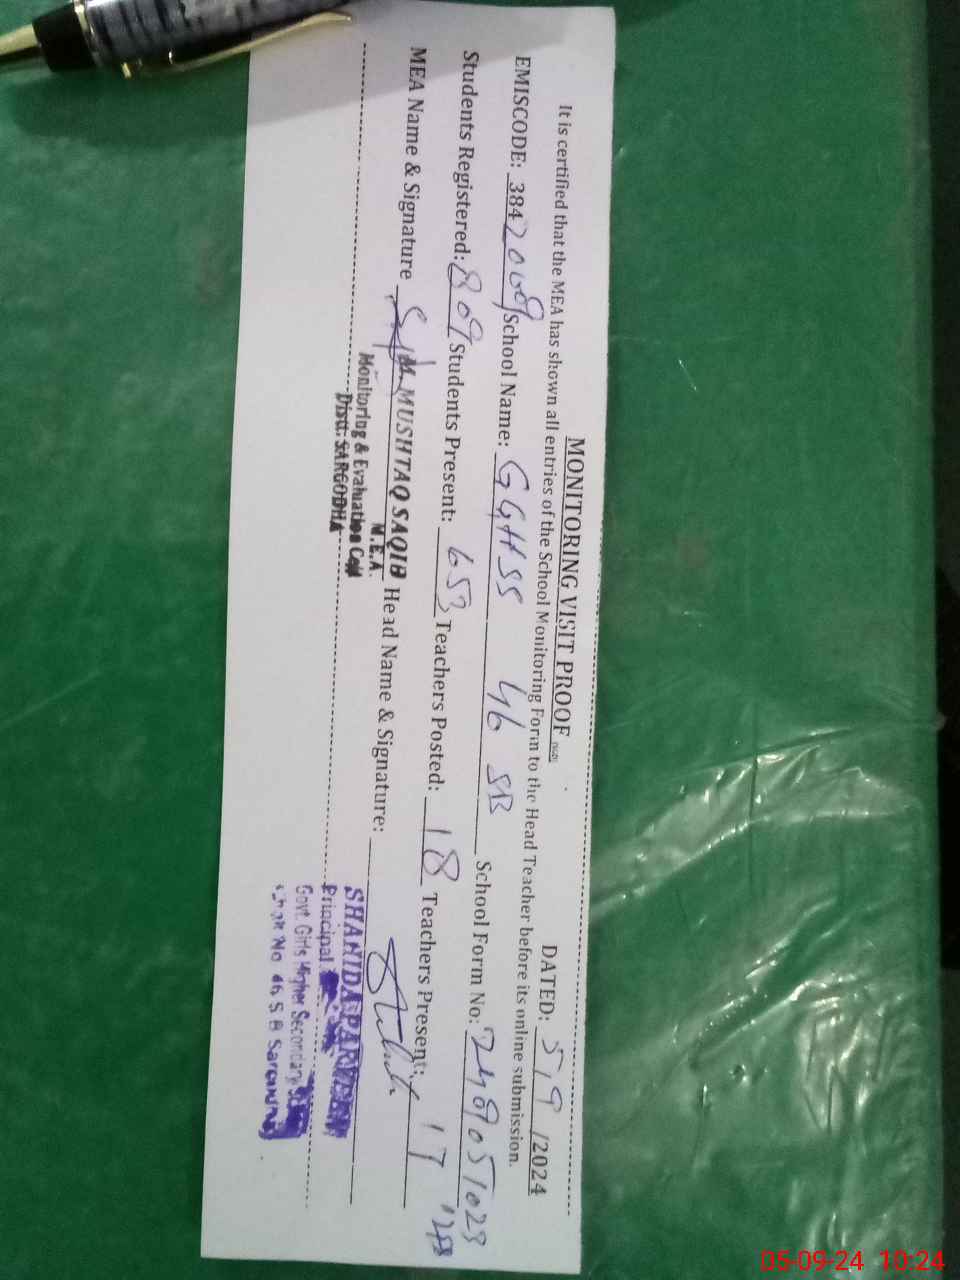 MONITORING VISIT PROOF
DATED: 5/9/2024
It is certified that the MEA has shown all entries of the School Monitoring Form to the Head Teacher before its online submission.
EMISCODE: 38420009 School Name: GGHSS 46 SB School Form No: 2409051023
Students Registered: 809 Students Present: 653 Teachers Posted: 18 Teachers Present: 17
MEA Name & Signature M. MUSHTAQ SAQIB Head Name & Signature:
M.E.A.
Monitoring & Evaluation Cell
Distt: SARGODHA
SHAHIDA PARVEEN
Principal
Govt. Girls Higher Secondary
Chak No 46 S B Sargodha
05-09-24 10:24